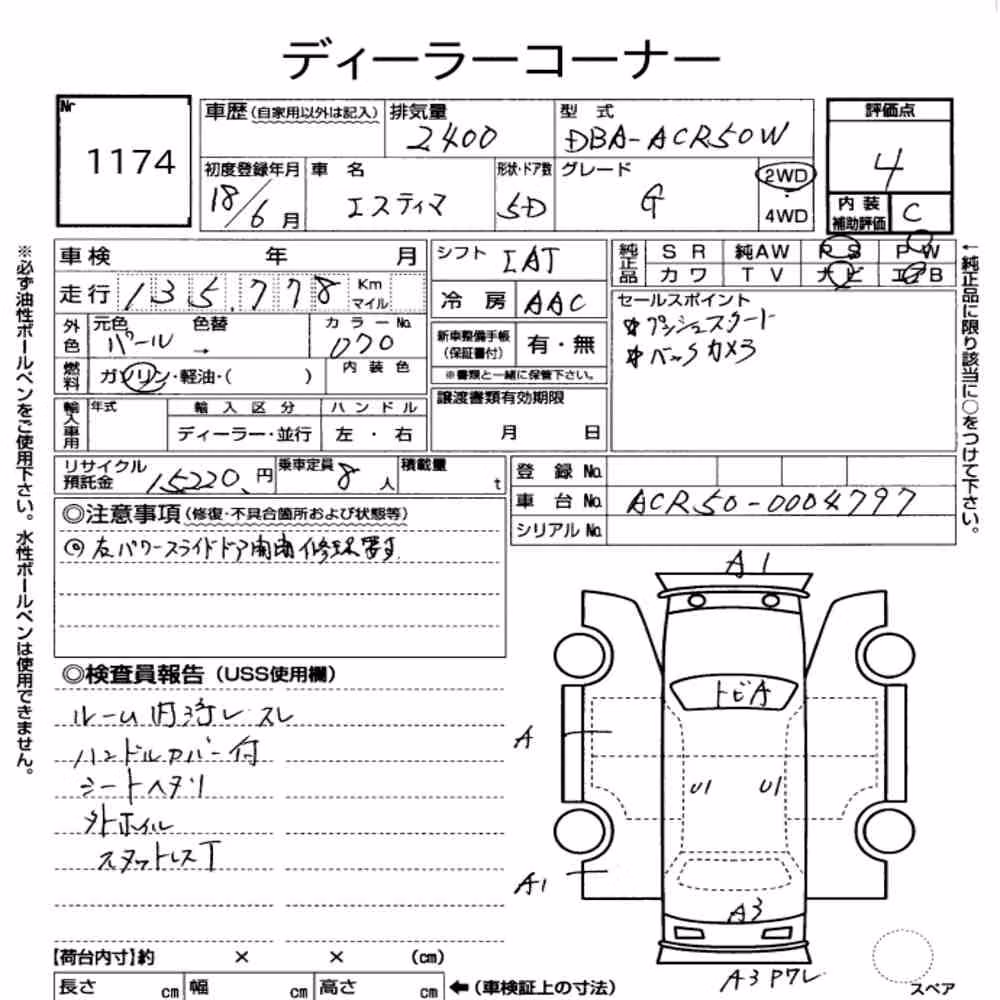 ディーラーコーナー
Nr
1174
車歴(自家用以外は記入)
排気量
2400
型 式
DBA-ACR50W
評価点
4
内装
補助評価
C
初度登録年月
18/6 月
車 名
エスティマ
形状・ドア数
5D
グレード
G
2WD
4WD
車検 年 月
シフト IAT
純正品
S R 純AW P S P W
カワ T V ナビ エアB
走行 135,778 Km
マイル
冷房 AAC
セールスポイント
* プッシュスタート
* バックカメラ
外色
元色 色替 カラーNo.
パール → 070
新車整備手帳
(保証書付)
有・無
※書類と一緒に保管下さい。
燃料
ガソリン・軽油・( )
内装色
輸入車用
年式
輸入区分
ハンドル
ディーラー・並行
左・右
譲渡書類有効期限
月 日
リサイクル
預託金
15220. 円
乗車定員 8 人
積載量 t
登録 No.
車台 No. ACR50-0004797
シリアル No.
◎注意事項(修復・不具合箇所および状態等)
◎左パワースライドドア開閉修理要す
◎検査員報告(USS使用欄)
ルーム内汚レ スレ
ハンドルカバー付
シートヘタリ
外ホイル
スタットレスT
A1
トビA
A
U1 U1
A1
A3
A3 Pワレ
スペア
【荷台内寸】約 × × (cm)
長さ cm 幅 cm 高さ cm ←(車検証上の寸法)
※必ず油性ボールペンをご使用下さい。水性ボールペンは使用できません。
←純正品に限り該当に○をつけて下さい。